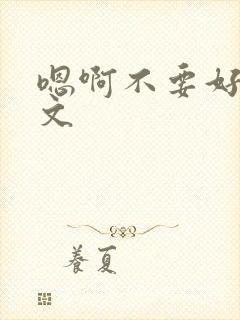 嗯啊不要好
文
养夏